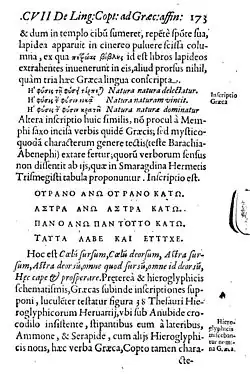 .CVII De Ling: Copt: ad Græc: affin: 173
& dum in templo cibū sumeret, repētè spōte sua,
lapidea apparuit in cinereo puluere scissa colum
na, ex qua πτυξὰς βίβλης id est libros lapideos
extrahentes inuenerunt in eis, aliud prorsus nihil,
quàm tria hæc Græca lingua conscripta.
Natura natura delectatur.
Natura naturam vincit.
Natura natura dominatur
Inscriptio
Græca
Altera inscriptio huic similis, nō procul à Mem-
phi saxo incisa verbis quidē Græcis, sed mystico-
quodā characterum genere tectis (teste Barachia-
Abenephi) extare fertur, quorū verborum sensus
non dissentit ab ijs, quæ in Smaragdina Hermetis
Trismegisti tabula proponuntur. Inscriptio est.
ΟΥΡΑΝΟ ΑΝΩ ΟΥΡΑΝΟ ΚΑΤΩ.
ΑΣΤΡΑ ΑΝΩ ΑΣΤΡΑ ΚΑΤΩ.
ΠΑΝΟ ΑΝΩ ΠΑΝ ΤΟΥΤΟ ΚΑΤΩ.
ΤΑΥΤΑ ΛΑΒΕ ΚΑΙ ΕΥΤΥΧΕ.
Hoc est Cælū sursum, Cælū deorsum, Astra sur-
sum, Astra deorsū, omne quod sursū, omne id deorsū,
Hæc cape & prosperare. Prætereà & hieroglyphicis
schematismis, Græcas subinde inscriptiones sup
poni, luculēter testatur figura 38 Thesauri Hie-
roglyphicorum Heruartij, vbi sub Anubide cro-
codilo insistente, stipantibus eum à lateribus,
Ammone, & Serapide, cum alijs Hieroglyphi-
cis nons, hæc verba Græca, Copto tamen chara-
cte-
Hiero-
glyphicis